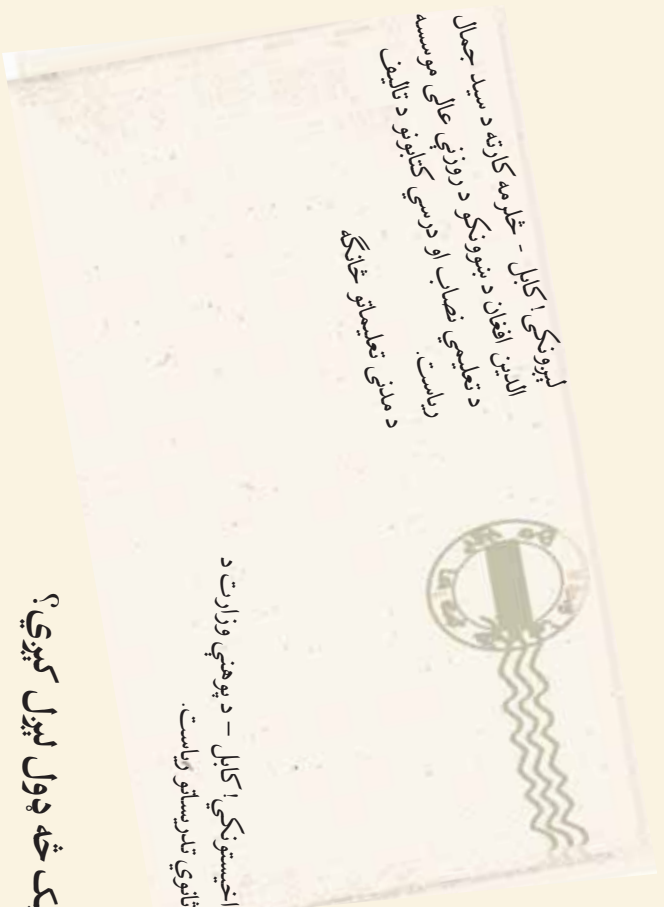 لیږونکی! کابل - څلرمه کارته د سید جمال
الدین افغان د ښوونکو د روزنې عالی موسسه
د تعلیمي نصاب او درسي کتابونو د تالیف
ریاست.
د مدنی تعلیماتو څانګه
اخیستونکي! کابل – د پوهنې وزارت د
ثانوي تدریساتو ریاست.
څه ډول لیږل کیږي؟